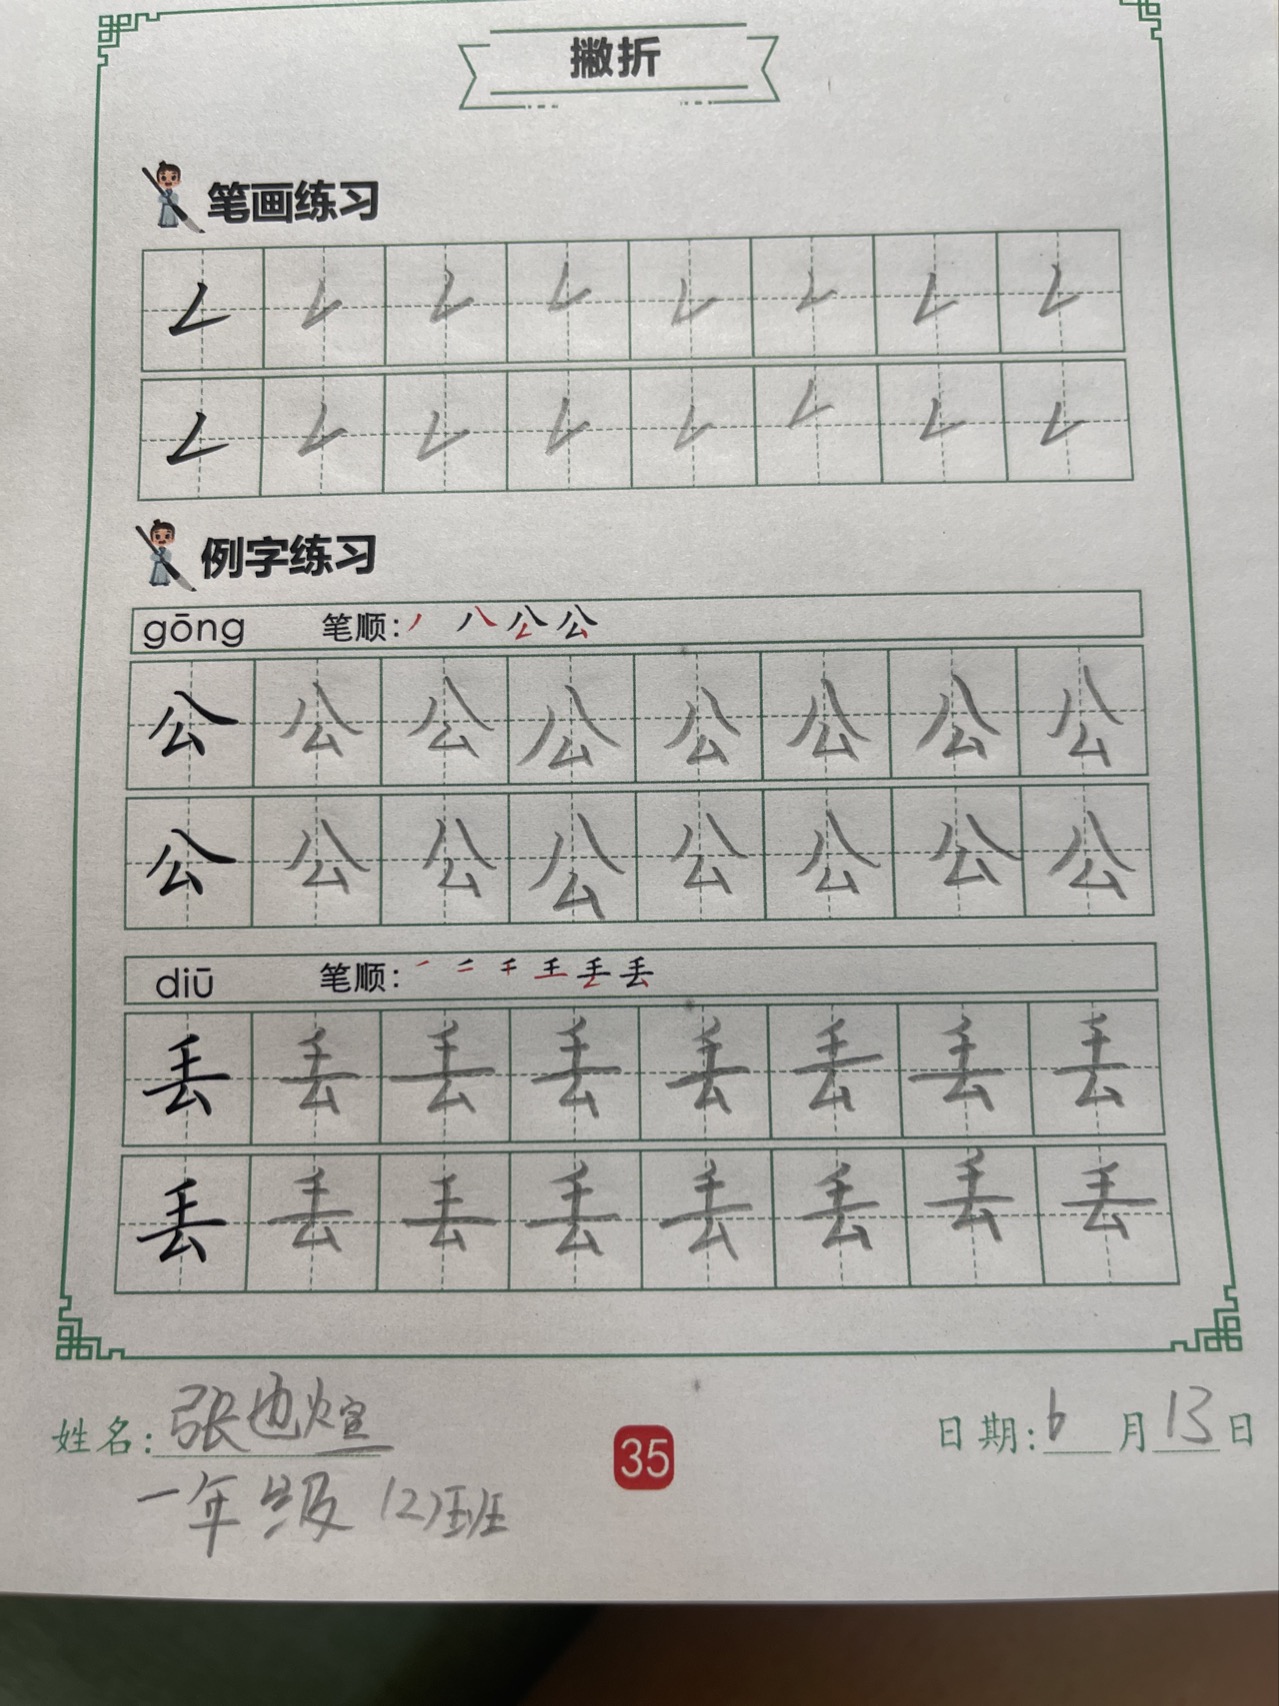 撇折
笔画练习
𠃋 𠃋 𠃋 𠃋 𠃋 𠃋 𠃋 𠃋
𠃋 𠃋 𠃋 𠃋 𠃋 𠃋 𠃋 𠃋
例字练习
gōng 笔顺: 丿 八 公 公
公 公 公 公 公 公 公 公
公 公 公 公 公 公 公 公
diū 笔顺: 一 二 千 王 丢 丢
丢 丢 丢 丢 丢 丢 丢 丢
丢 丢 丢 丢 丢 丢 丢 丢
姓名: 张也煊 35 日期: 6 月 13 日
一年级 (2) 班